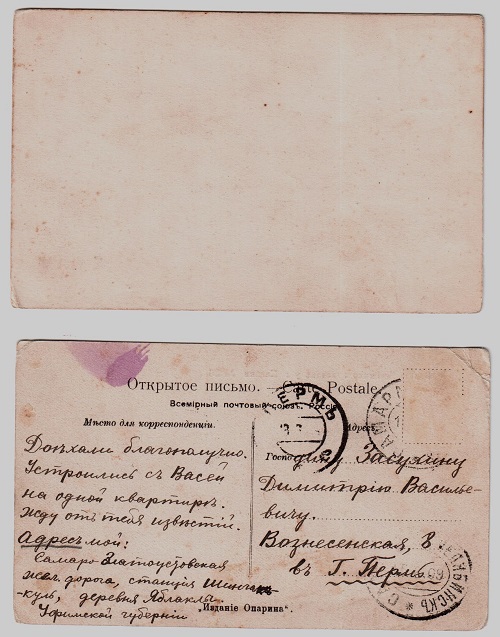 Открытое письмо. — Carte Postale
Всемірный почтовый союзъ. Россія
Мѣсто для корреспонденціи.
Адресъ.
ПЕРМЬ
САМАРА
Доѣхали благополучно.
Устроились съ Васей
на одной квартирѣ.
Жду отъ тебя извѣстій.
Адресъ мой:
Самаро-Златоустовская
жел. дорога, станція
-куль, деревня Яблаклы
Уфимской губерніи
Господину Засухину
Димитрію Василье-
вичу.
Вознесенская, 8
въ Г. Пермь
„Изданіе Опарина“.